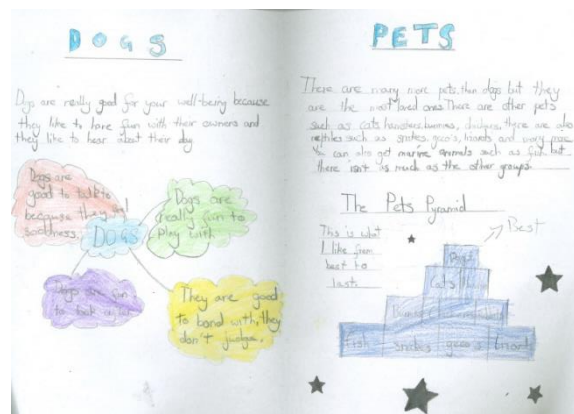 DOGS
Dogs are really good for your well-being because
they like to have fun with their owners and
they like to hear about their day.
Dogs are
good to talk to
because they
DOGS
Dogs are
really fun to
play with
Dogs are fun
to look after
They are good
to bond with, they
don't judge.
PETS
There are many more pets than dogs but they
are the most loved ones. There are other pets
such as cats, hamsters, bunnies, there are also
reptiles such as snakes, gecco's, lizards and many more
You can also get marine animals such as fish but
there isn't as much as the other groups.
The Pets Pyramid
This is what
I like from
best to
last
Best
Dogs
Cats
Fish snakes gecco's lizards